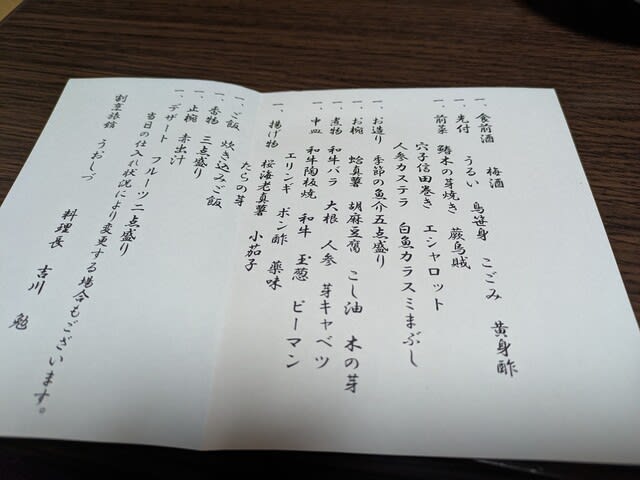 一、食前酒　梅酒
一、先付　うるい　鳥笹身　こごみ　黄身酢
一、前菜　鰆木の芽焼き　蕨烏賊
穴子信田巻き　エシャロット
人参カステラ　白魚カラスミまぶし
一、お造り　季節の魚介五点盛り
一、お椀　蛤真薯　胡麻豆腐　こし油　木の芽
一、煮物　和牛バラ　大根　人参　芽キャベツ
一、中皿　和牛陶板焼　和牛　玉葱　ピーマン
エリンギ　ポン酢　薬味
一、揚げ物　桜海老真薯　小茄子
たらの芽
一、ご飯　炊き込みご飯
一、香物　三点盛り
一、止椀　赤出汁
一、デザート　フルーツ二点盛り
当日の仕入れ状況により変更する場合もございます。
割烹旅館　うおしづ
料理長　吉川　勉